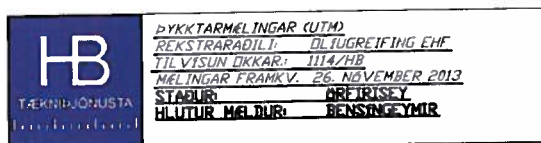 HB
TÆKNIÞJÓNUSTA
ÞYKKTARMÆLINGAR (UTM)
REKSTRARAÐILI: OLÍUDREIFING EHF
TILVÍSUN OKKAR: 1114/HB
MÆLINGAR FRAMKV. 26. NÓVEMBER 2013
STAÐUR: ÖRFIRISEY
HLUTUR MÆLDUR: BENSÍNGEYMIR